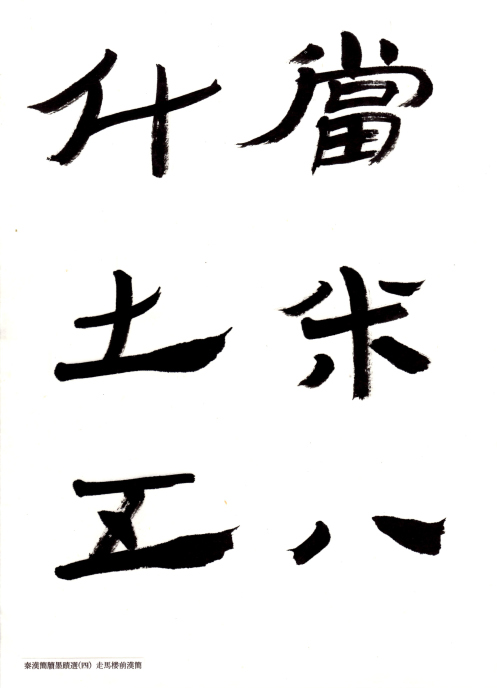 當米八
什土五
秦漢簡牘墨蹟選(四) 走馬楼前漢簡